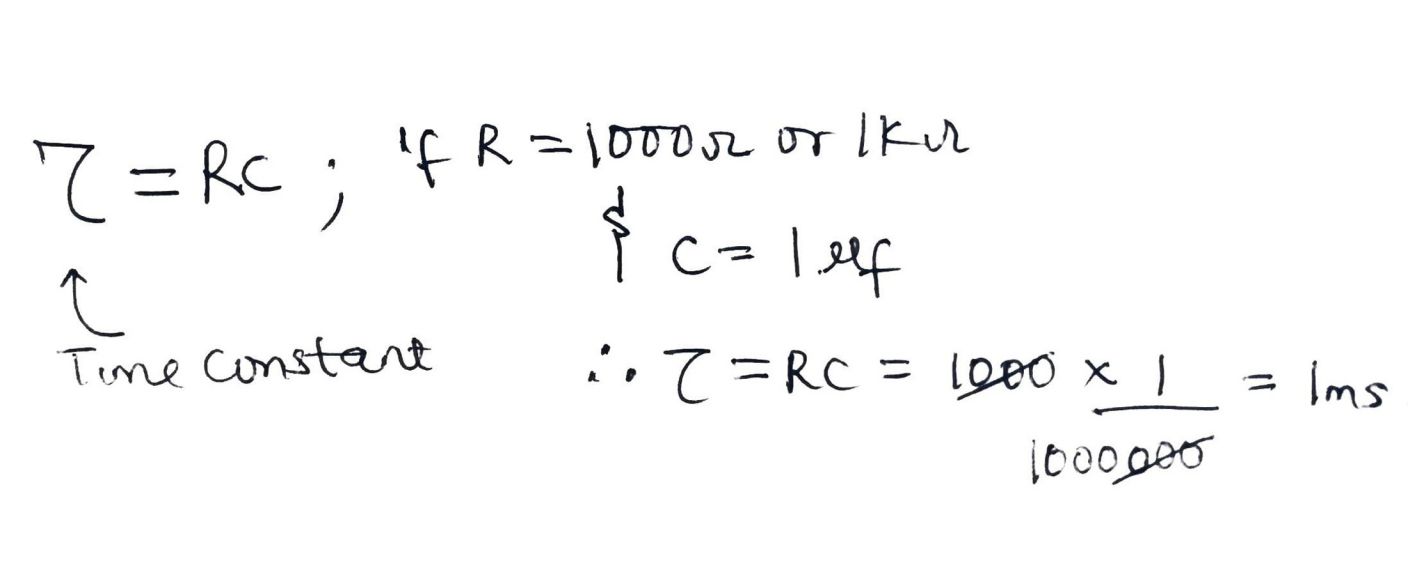 τ = RC ; if R = 1000Ω or 1KΩ
& C = 1μf
Time constant
∴ τ = RC = 1000 × 1 / 1000000 = 1ms